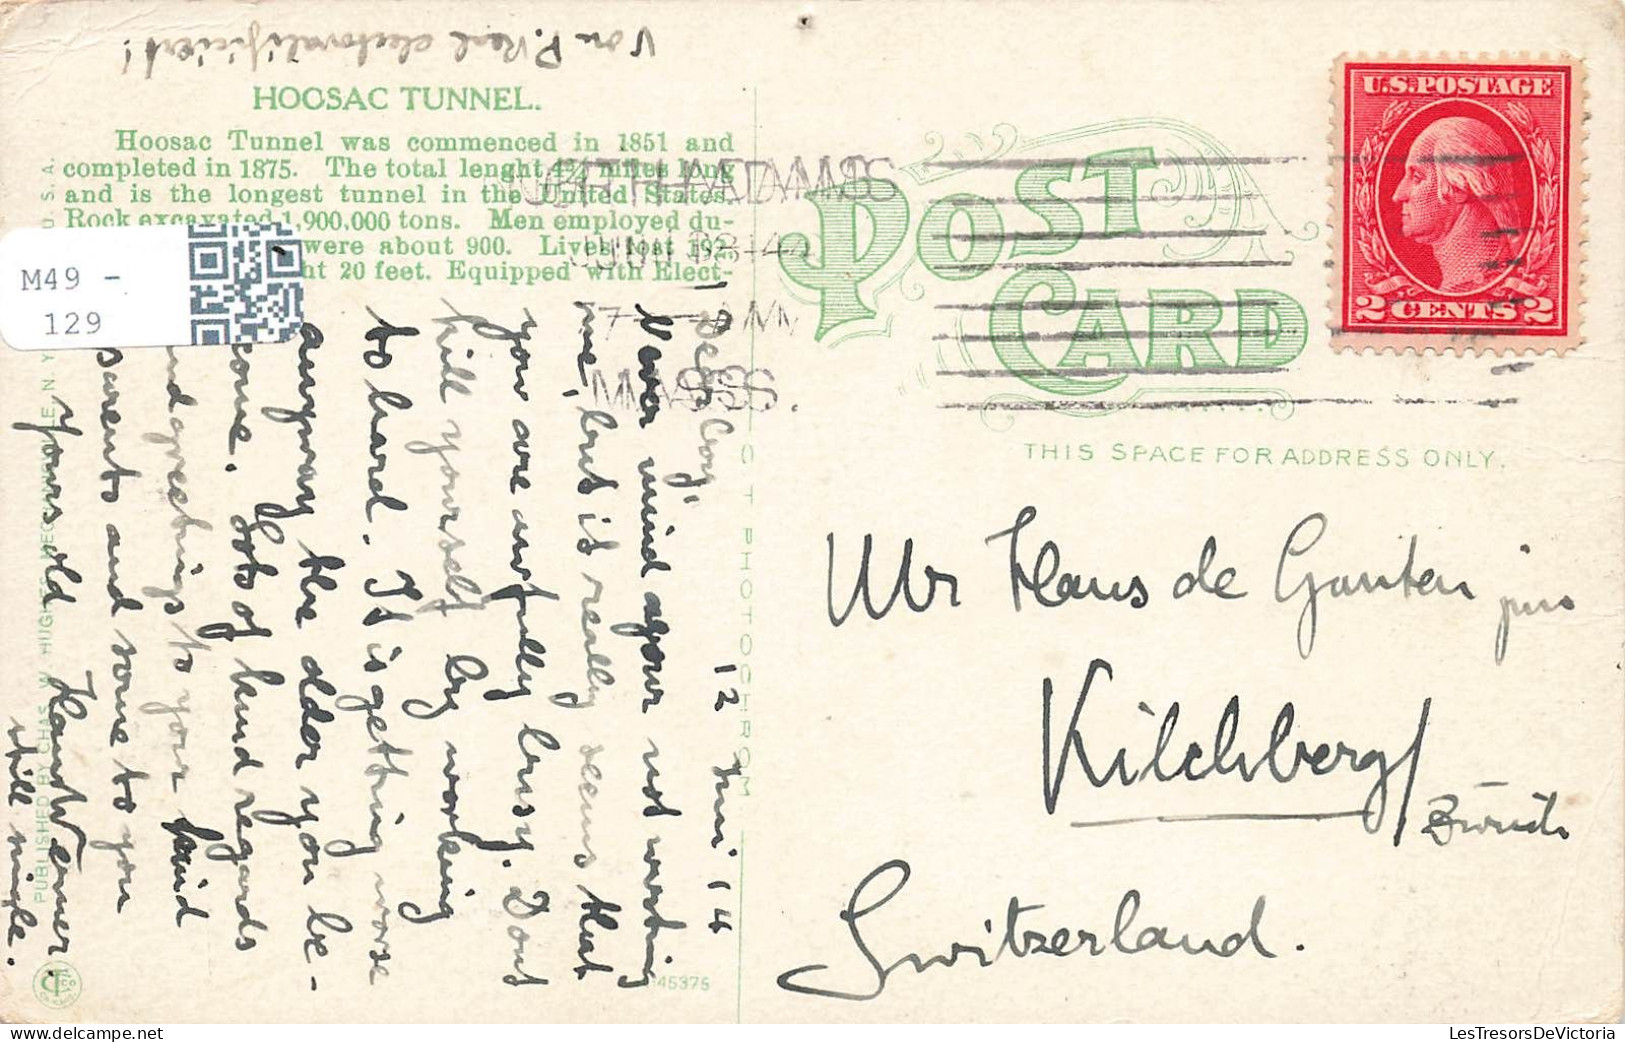 Von P. Real electoralificiert!
HOOSAC TUNNEL.
Hoosac Tunnel was commenced in 1851 and
completed in 1875. The total lenght 4¾ miles long
and is the longest tunnel in the United States.
Rock excavated 1,900,000 tons. Men employed du-
were about 900. Lives lost 192
ht 20 feet. Equipped with Elect-
U. S. A.
PUBLISHED BY CHAS. W. HUGHES, MECHANICVILLE, N. Y.
M49 -
129
12 Juni 14
Dear boy,
Never mind your not writing
me, but it really seems that
you are awfully busy. Dont
kill yourself by working
to hard. It is getting worse
anyway the older you be-
come. Lots of kind regards
and greetings to your kind
parents and some to you
Yours old Hans Werner.
still single.
145375
OCTOCHROM
NORTH ADAMS
JUN 13 14
7 - AM
MASS.
POST
CARD
THIS SPACE FOR ADDRESS ONLY.
U.S. POSTAGE
2 CENTS 2
Mr Hans de Ganten jun
Kilchberg/
Zürich
Switzerland.
LesTresorsDeVictoria